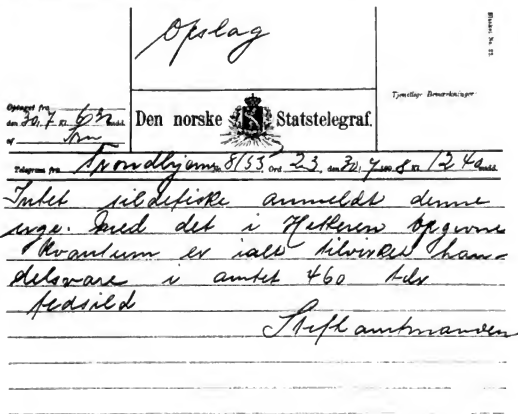 Opslag
Blanket No. 22.
Tjenstlige Bemærkninger:
Optaget fra
den 30/7 Kl. 6 32 mdd.
af
Den norske Statstelegraf.
Telegram fra Trondhjem No. 8/53, Ord 23, den 30/7 1908 Kl. 12 40 mdd.
Intet sildefiske anmeldt denne
uge. Med det i opgivne
kvantum er ialt tilvirket han-
delsvare i amtet 460 tdr
fedsild
Stiftamtmanden